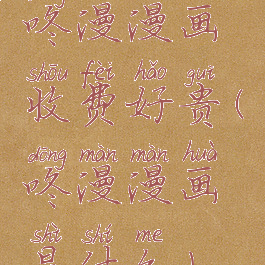 咚漫漫画
shōu fèi hǎo guì
收费好贵（
dōng màn màn huà
咚漫漫画
shì shí me
是什么）